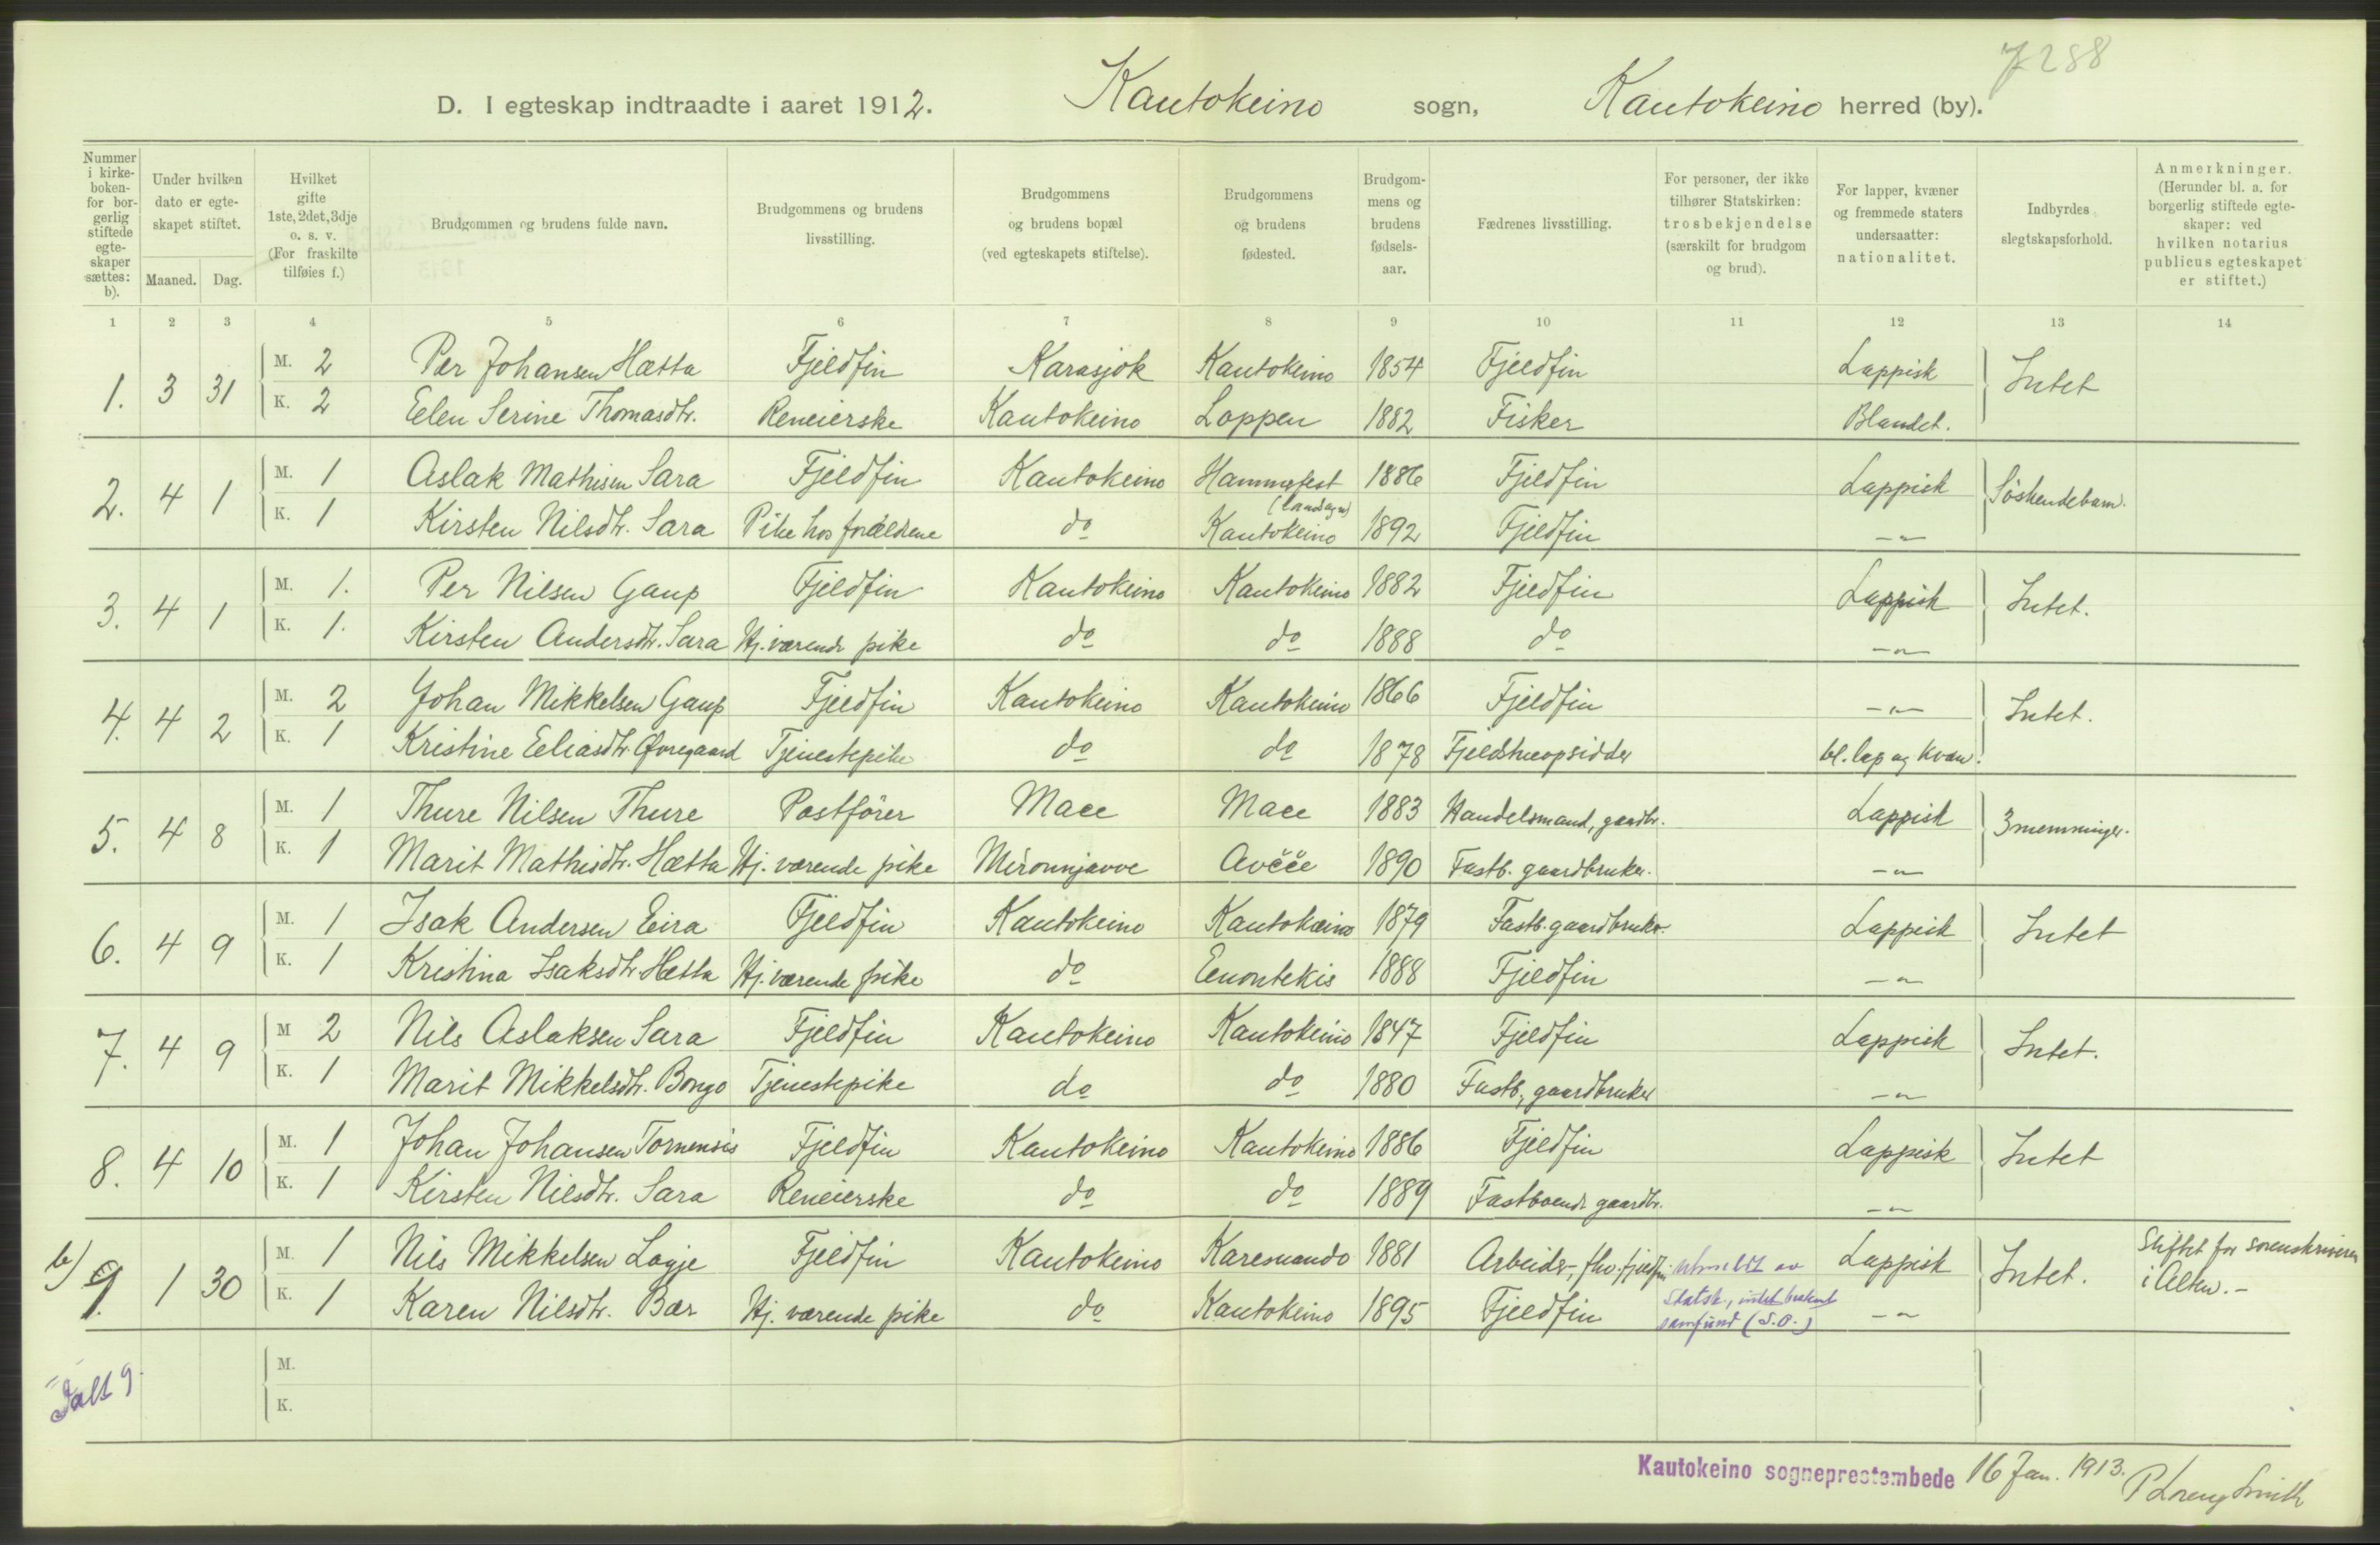 7288
D. I egteskap indtraadte i aaret 1912. Kautokeino sogn, Kautokeino herred (by).
Nummer i kirke-boken- for bor-gerlig stiftede egte-skaper sættes: b).
Under hvilken dato er egte-skapet stiftet.
Maaned. Dag.
Hvilket gifte 1ste, 2det, 3dje o. s. v. (For fraskilte tilføies f.)
Brudgommen og brudens fulde navn.
Brudgommens og brudens livsstilling.
Brudgommens og brudens bopæl (ved egteskapets stiftelse).
Brudgommens og brudens fødested.
Brudgom-mens og brudens fødsels-aar.
Fædrenes livsstilling.
For personer, der ikke tilhører Statskirken: trosbekjendelse (særskilt for brudgom og brud).
For lapper, kvæner og fremmede staters undersaatter: nationalitet.
Indbyrdes slegtskapsforhold.
Anmerkninger. (Herunder bl. a. for borgerlig stiftede egte-skaper: ved hvilken notarius publicus egteskapet er stiftet.)
1 2 3 4 5 6 7 8 9 10 11 12 13 14
1. 3 31 M. 2 Per Johansen Hætta Fjeldfin Karasjok Kautokeino 1854 Fjeldfin Lappisk Intet
K. 2 Eelen Serine Thomasdtr. Reneierske Kautokeino Loppen 1882 Fisker Blandet.
2. 4 1 M. 1 Aslak Mathisen Sara Fjeldfin Kautokeino Hammerfest (landsogn) 1886 Fjeldfin Lappisk Söskendebarn.
K. 1 Kirsten Nilsdtr. Sara Pike hos forældrene do Kautokeino 1892 Fjeldfin —"—
3. 4 1 M. 1. Per Nilsen Gaup Fjeldfin Kautokeino Kautokeino 1882 Fjeldfin Lappisk Intet.
K. 1. Kirsten Andersdtr. Sara Hj. værende pike do do 1888 do —"—
4. 4 2 M. 2 Johan Mikkelsen Gaup Fjeldfin Kautokeino Kautokeino 1866 Fjeldfin —"— Intet.
K. 1 Kristine Eeliasdtr. Øvregaard Tjenestepike do do 1878 Fjeldstueopsidder bl. lap og kvæn.
5. 4 8 M. 1 Thure Nilsen Thure Postförer Mace Mace 1883 Handelsmand, gaardbr. Lappisk 3menninger.
K. 1 Marit Mathisdtr. Hætta Hj. værende pike Mironnjavve Avčče 1890 Fastb. gaardbruker. —"—
6. 4 9 M. 1 Isak Andersen Eira Fjeldfin Kautokeino Kautokeino 1879 Fastb. gaardbruker. Lappisk Intet
K. 1 Kristina Isaksdtr. Hætta Hj. værende pike do Enontekis 1888 Fjeldfin —"—
7. 4 9 M 2 Nils Aslaksen Sara Fjeldfin Kautokeino Kautokeino 1847 Fjeldfin Lappisk Intet.
K. 1 Marit Mikkelsdtr. Bongo Tjenestepike do do 1880 Fastb. gaardbruker —"—
8. 4 10 M. 1 Johan Johansen Tornensis Fjeldfin Kautokeino Kautokeino 1886 Fjeldfin Lappisk Intet
K. 1 Kirsten Nilsdtr. Sara Reneierske do do 1889 Fastboende gaardbr. —"—
b) 9. 1 30 M. 1 Nils Mikkelsen Logje Fjeldfin Kautokeino Karesuando 1881 Arbeider, fhv. fjeldfin utmeldt av Lappisk Intet. Stiftet for sorenskriveren
K. 1 Karen Nilsdtr. Bær Hj. værende pike do Kautokeino 1895 Fjeldfin Statsk, intet bestemt samfund (S.O.) —"— i Alten. —
Ialt 9. M.
K.
Kautokeino sogneprestembede 16 Jan. 1913.
P Lorenz Smith